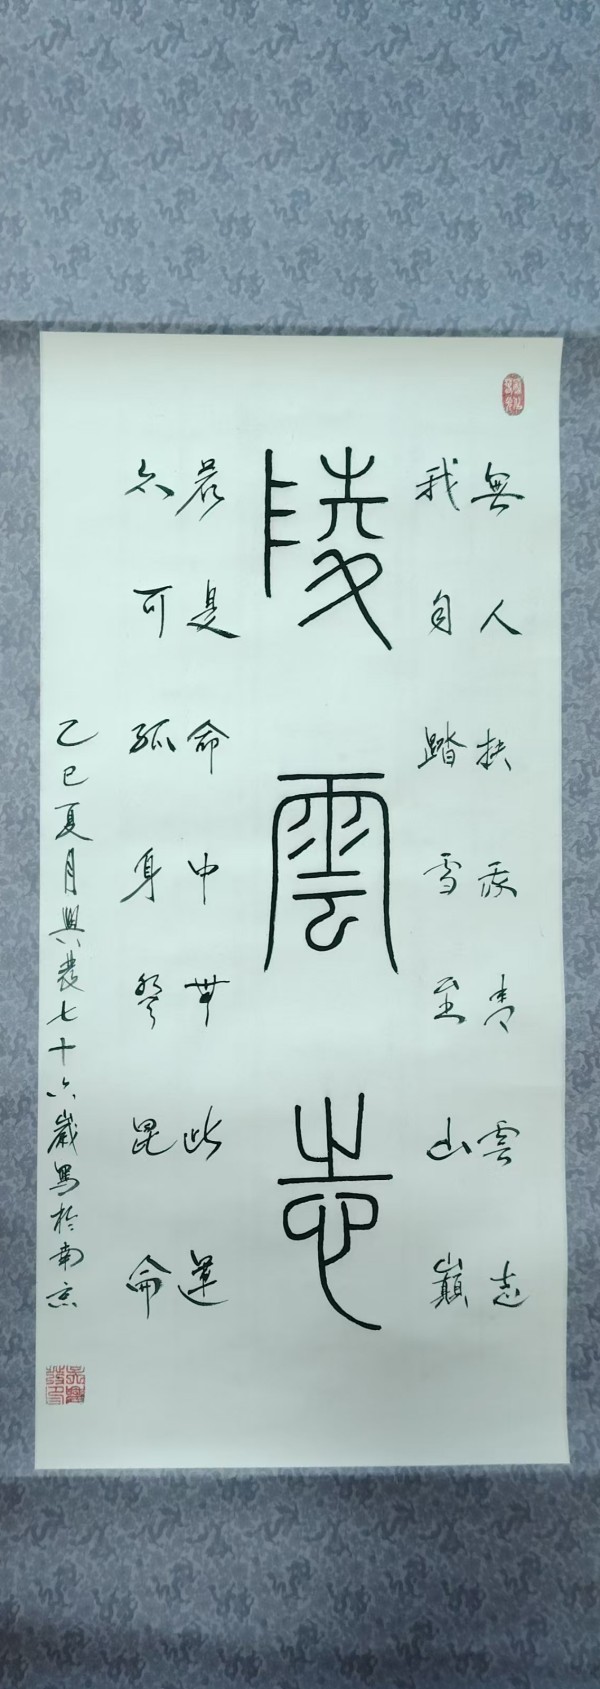 無人扶我青雲志
我自踏雪至山巔
陵雲志
若是命中無此運
亦可孤身登昆侖
乙巳夏月興農七十六歲寫於南京